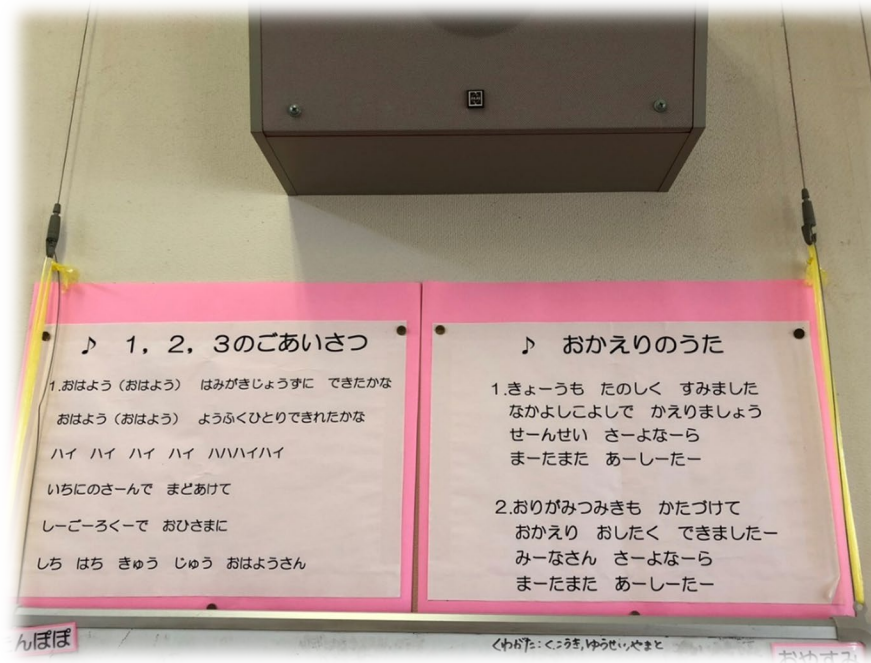 ♪ 1，2，3のごあいさつ
1.おはよう（おはよう） はみがきじょうずに できたかな
おはよう（おはよう） ようふくひとりできれたかな
ハイ ハイ ハイ ハイ ハハハイハイ
いちにのさーんで まどあけて
しーごーろくーで おひさまに
しち はち きゅう じゅう おはようさん
♪ おかえりのうた
1.きょーうも たのしく すみました
なかよしこよしで かえりましょう
せーんせい さーよなーら
まーたまた あーしーたー
2.おりがみつみきも かたづけて
おかえり おしたく できましたー
みーなさん さーよなーら
まーたまた あーしーたー
んぽぽ
くわがた：く、こうき,ゆうせい,やまと
おやすみ